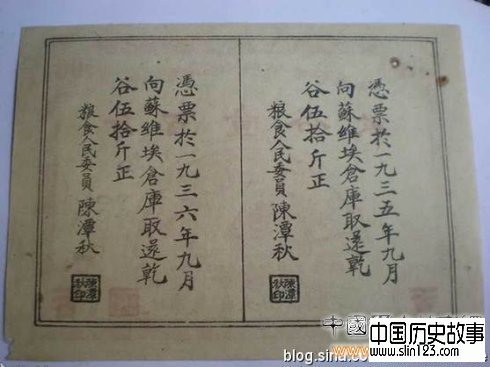 憑票於一九三五年九月
向蘇維埃倉庫取還乾
谷伍拾斤正
粮食人民委員 陳潭秋
陳潭秋印
憑票於一九三六年九月
向蘇維埃倉庫取還乾
谷伍拾斤正
粮食人民委員 陳潭秋
陳潭秋印
中國
中国历史故事
www.slin123.com
blog.sina.co